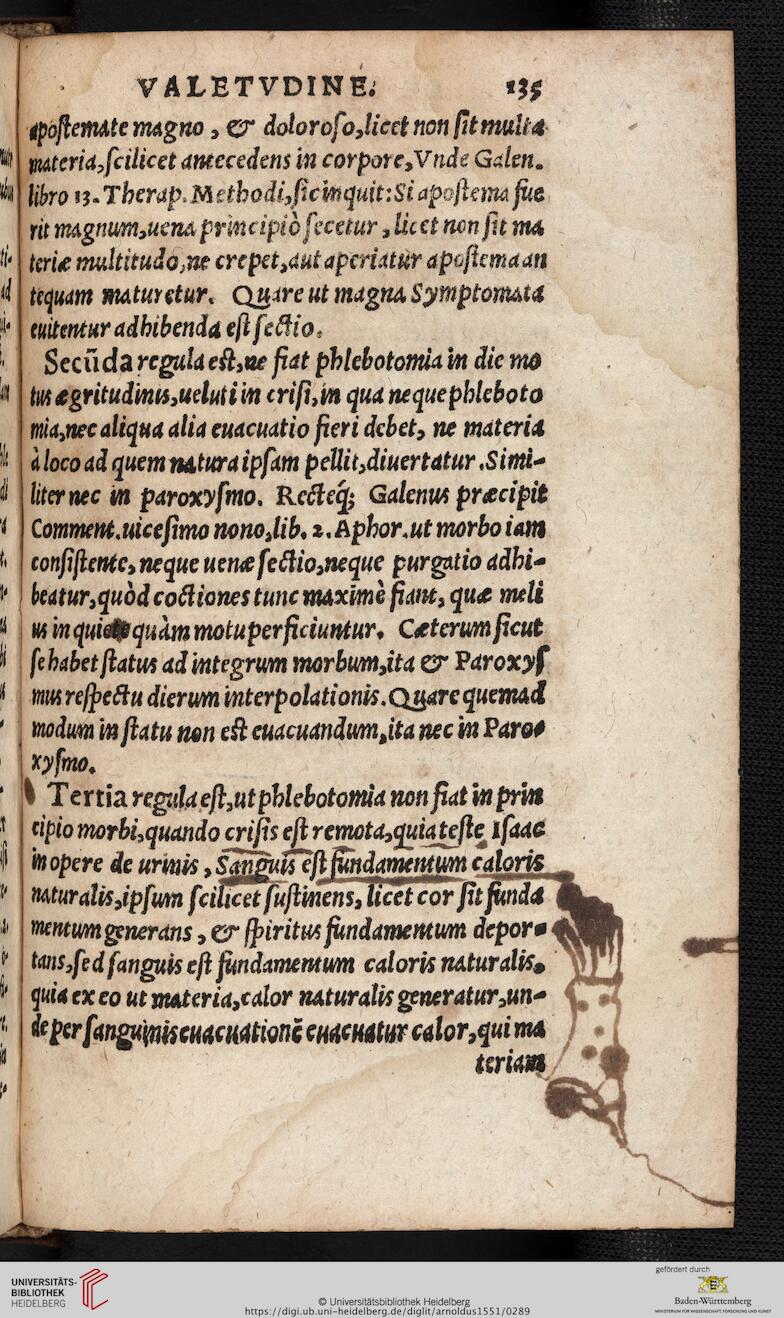 VALETVDINE. 135
apostemate magno, & doloroso, licet non sit multa
materia, scilicet antecedens in corpore, Vnde Galen.
libro 13. Therap. Methodi, sic inquit: Si apostema fue
rit magnum, uena principiò secetur, licet non sit ma
teriæ multitudo, ne crepet, aut aperiatur apostema an
tequam maturetur. Quare ut magna Symptomata
euitentur adhibenda est sectio.
Secūda regula est, ne fiat phlebotomia in die mo
tus ægritudinis, ueluti in crisi, in qua neque phleboto
mia, nec aliqua alia euacuatio fieri debet, ne materia
à loco ad quem natura ipsam pellit, diuertatur. Simi-
liter nec in paroxysmo. Recteq́; Galenus præcipit
Comment. uicesimo nono, lib. 2. Aphor. ut morbo iam
consistente, neque uenæ sectio, neque purgatio adhi-
beatur, quòd coctiones tunc maximè fiant, quæ meli
us in quiete quàm motu perficiuntur. Cæterum sicut
se habet status ad integrum morbum, ita & Paroxys
mus respectu dierum interpolationis. Quare quemad
modum in statu non est euacuandum, ita nec in Paro-
xysmo.
Tertia regula est, ut phlebotomia non fiat in prin
cipio morbi, quando crisis est remota, quia teste Isaac
in opere de urinis, Sanguis est fundamentum caloris
naturalis, ipsum scilicet sustinens, licet cor sit funda
mentum generans, & spiritus fundamentum depor-
tans, sed sanguis est fundamentum caloris naturalis.
quia ex eo ut materia, calor naturalis generatur, un-
de per sanguinis euacuationē euacuatur calor, qui ma
teriam
UNIVERSITÄTS-
BIBLIOTHEK
HEIDELBERG
© Universitätsbibliothek Heidelberg
https://digi.ub.uni-heidelberg.de/diglit/arnoldus1551/0289
gefördert durch
Baden-Württemberg
MINISTERIUM FÜR WISSENSCHAFT, FORSCHUNG UND KUNST